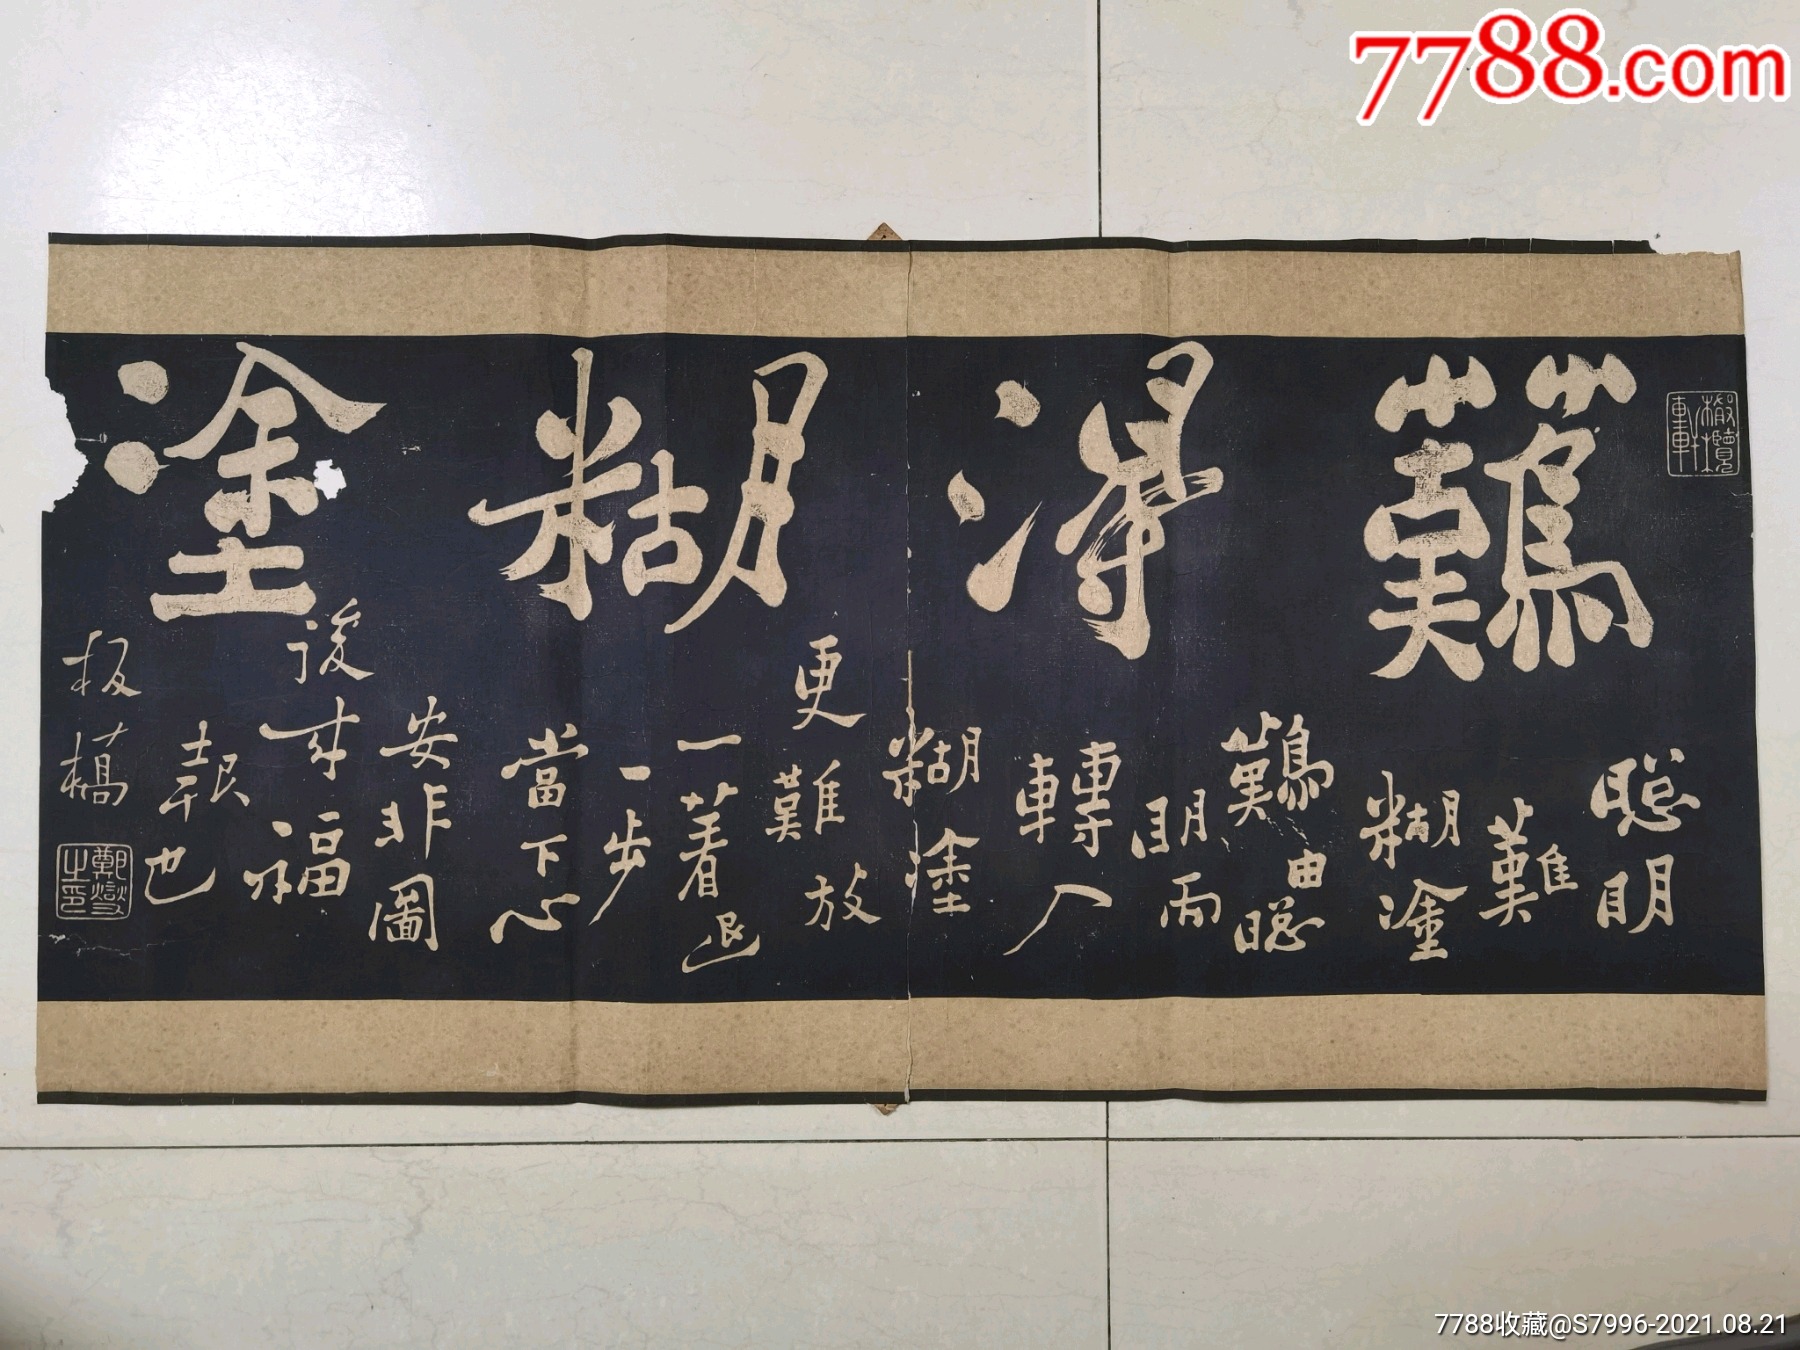 難得糊塗
聰明
難
糊塗
難由聰
明而
轉入
糊塗
更難放
一着退
一步
當下心
安非圖
後来福
報也
板橋
橄欖軒
鄭燮之印
7788.com
7788收藏@S7996-2021.08.21